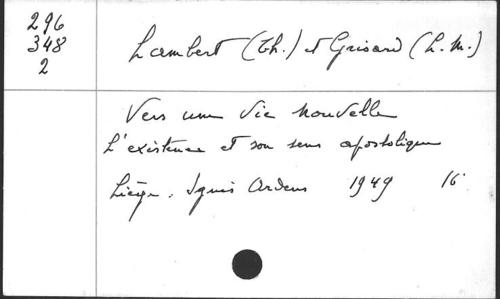 296
348
2
Lambert (Th.) et Grisard (L. M.)
Vers une Vie nouvelle
L'existence et son sens apostolique
Liège. Ignis Ardens 1949 16°